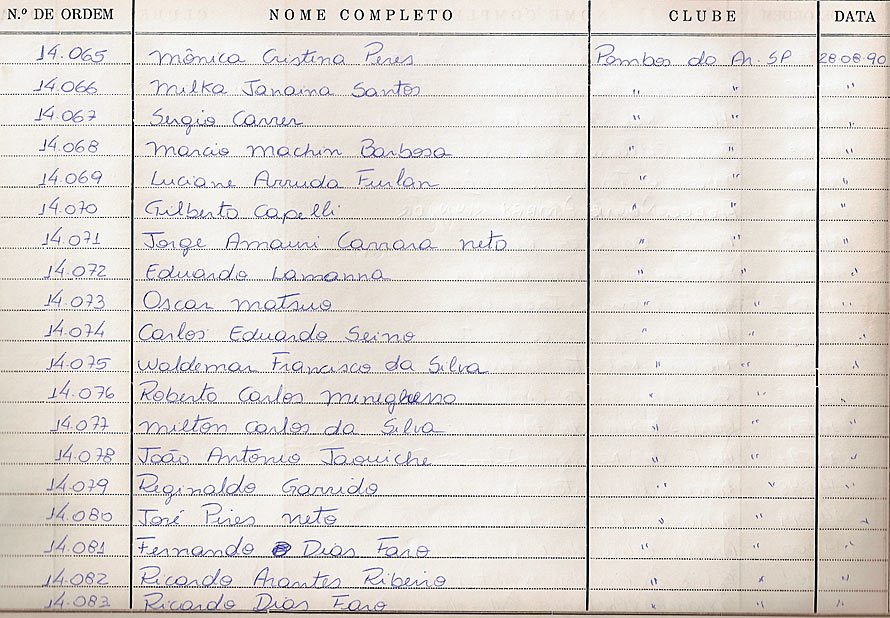 N.º DE ORDEM NOME COMPLETO CLUBE DATA
14.065 Mônica Cristina Peres Pombos do Ar. SP 28.08.90
14.066 Milka Janaina Santos " " "
14.067 Sergio Carrer " " "
14.068 Marcio Machin Barbosa " " "
14.069 Luciane Arruda Furlan " " "
14.070 Gilberto Capelli " " "
14.071 Jorge Amauri Carrara neto " " "
14.072 Eduardo Lamanna " " "
14.073 Oscar Matsuo " " "
14.074 Carlos Eduardo Seino " " "
14.075 Waldemar Francisco da Silva " " "
14.076 Roberto Carlos Meneghesso " " "
14.077 Milton Carlos da Silva " " "
14.078 João Antonio Jaquiche " " "
14.079 Reginaldo Garrido " " "
14.080 José Pires neto " " "
14.081 Fernando Dias Faro " " "
14.082 Ricardo Arantes Ribeiro " " "
14.083 Ricardo Dias Faro " " "